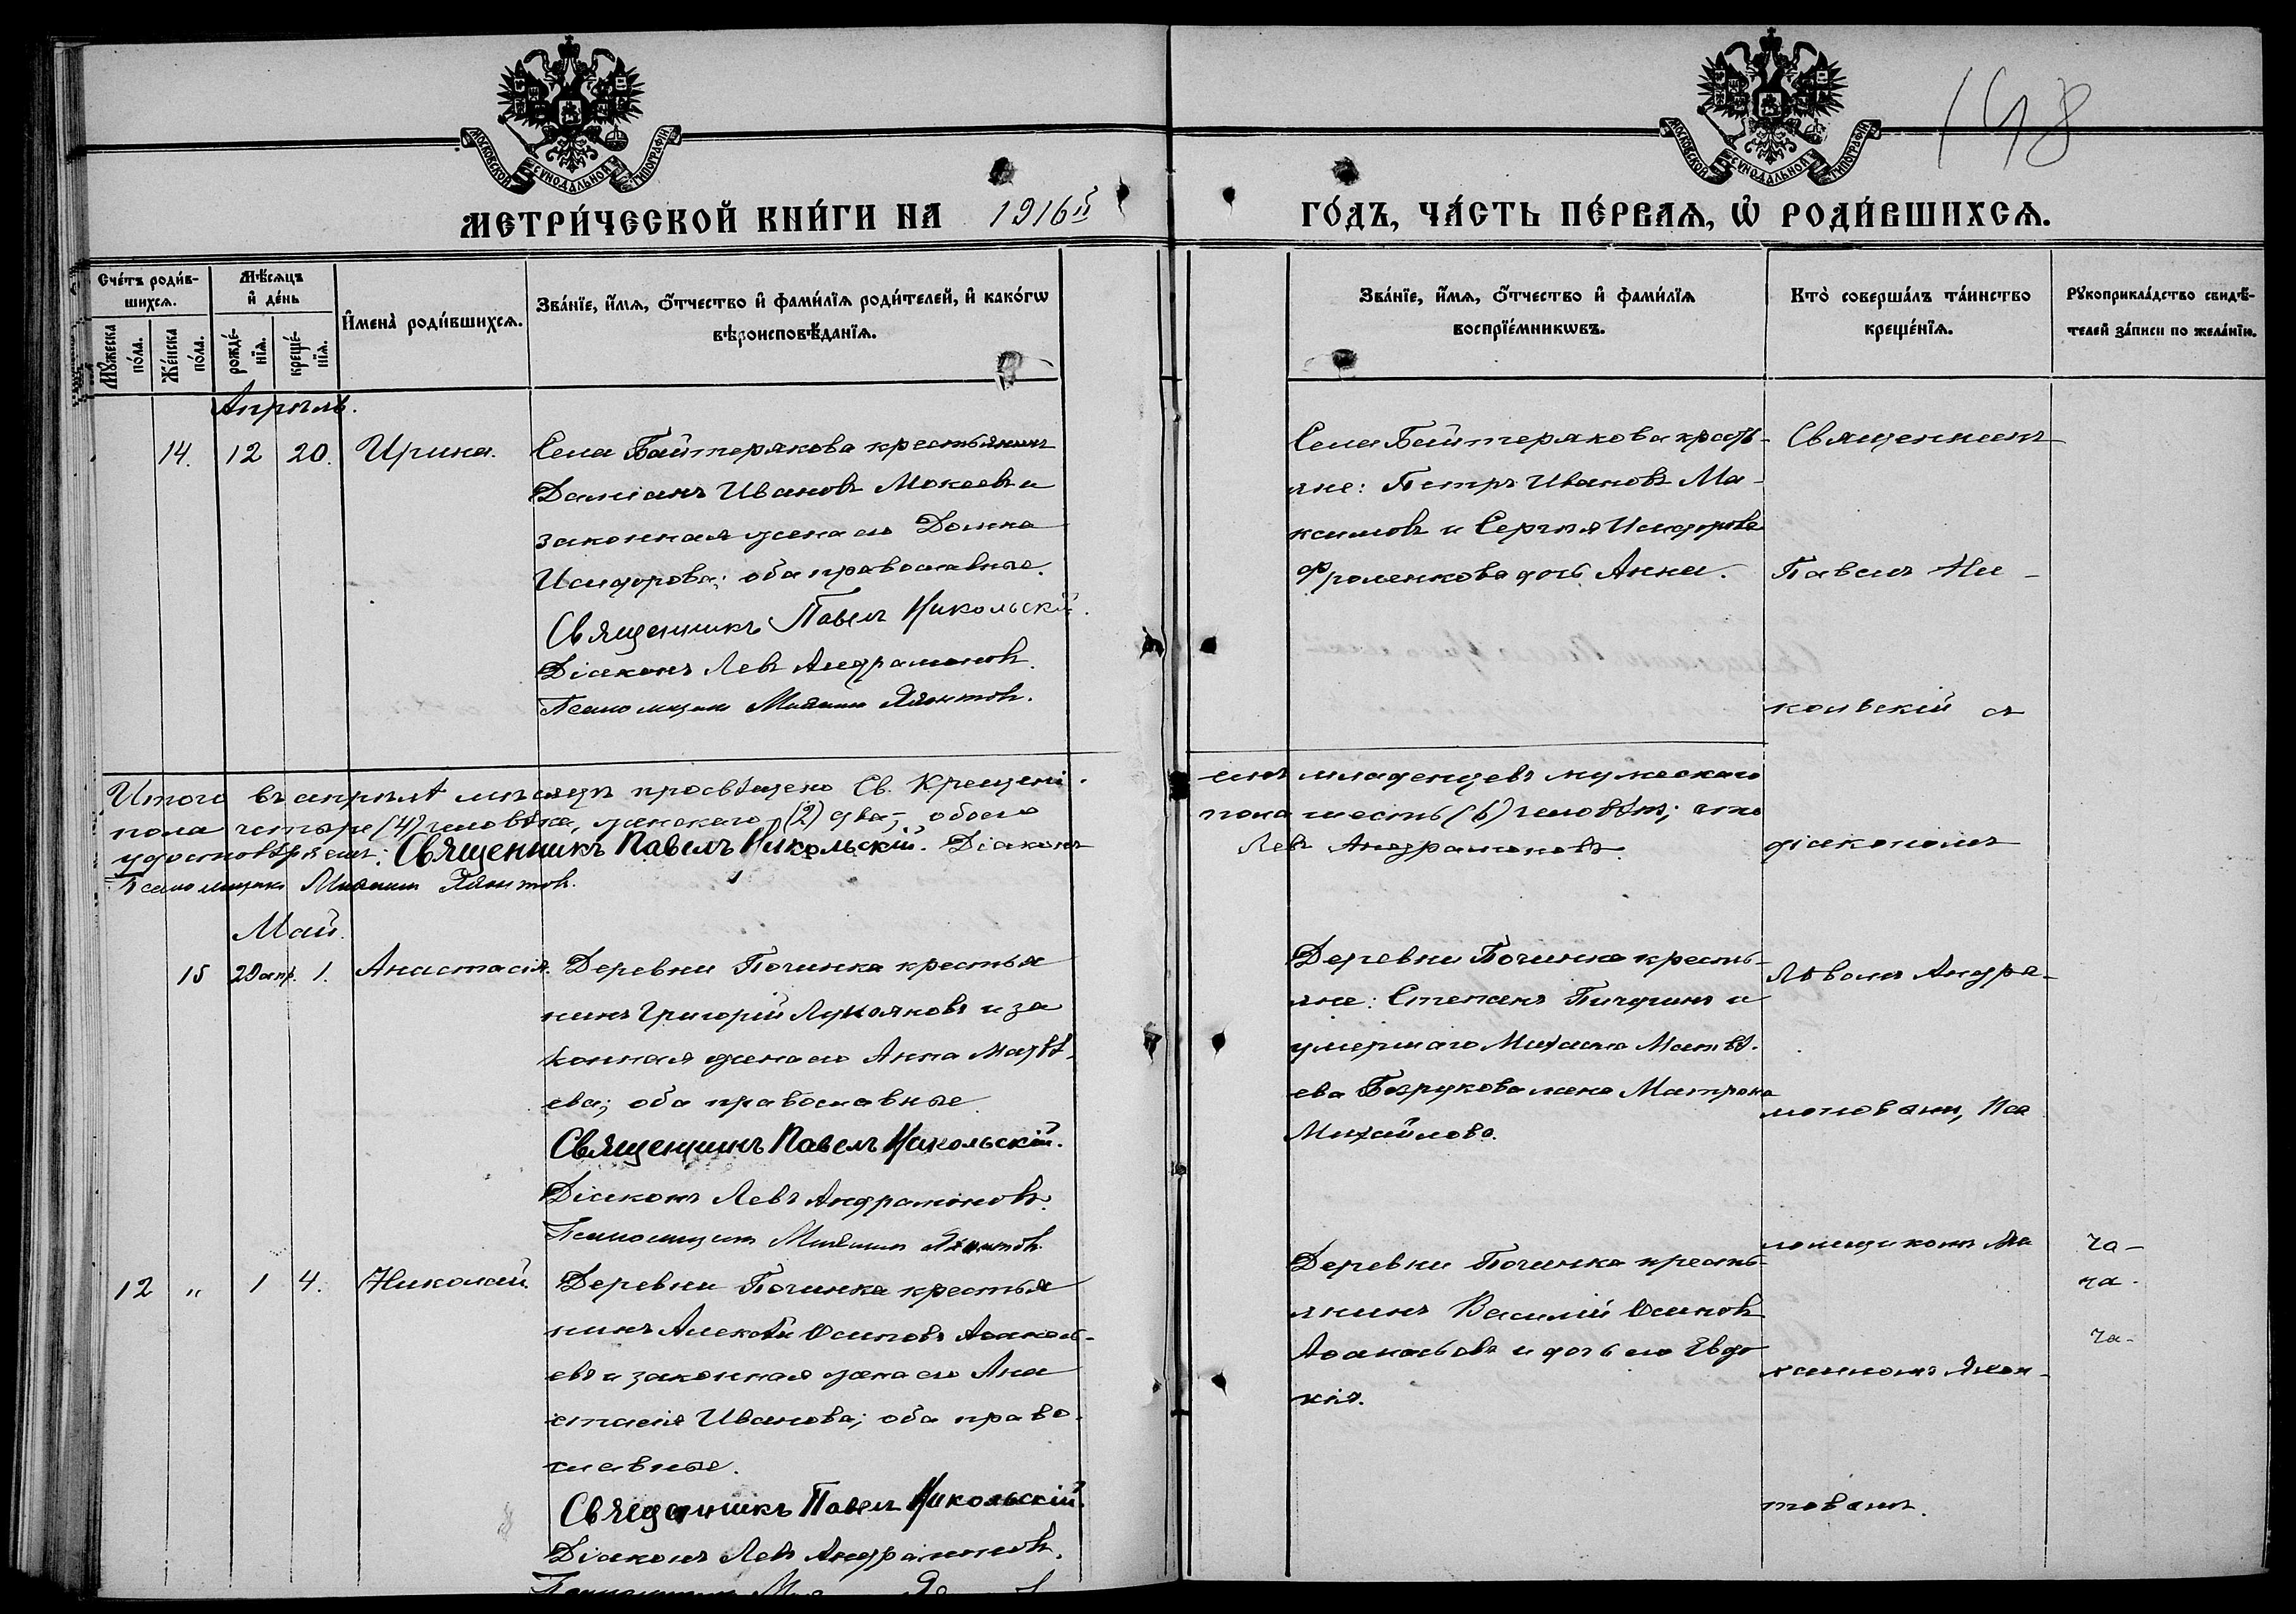 148
МОСКОВСКОЙ СѴНОДАЛЬНОЙ ТИПОГРАФІИ
МОСКОВСКОЙ СѴНОДАЛЬНОЙ ТИПОГРАФІИ
МЕТРИ́ЧЕСКОЙ КНИ́ГИ НА 1916й ГО́ДЪ, ЧА́СТЬ ПЕ́РВАѦ, Ѡ РОДИ́ВШИХСѦ.
Сче́тъ роди́в-
шихсѧ.
Мꙋжеска по́ла.
Же́нска по́ла.
Мѣ́сѧцъ
и҆ де́нь
рожде́-
нїѧ.
креще́-
нїѧ.
И҆мена̀ роди́вшихсѧ.
Зва́нїе, и҆́мѧ, ѻ҆́тчество и҆ фами́лїѧ роди́телей, и҆ како́гѡ
вѣроисповѣ́данїѧ.
Зва́нїе, и҆́мѧ, ѻ҆́тчество и҆ фами́лїѧ
воспрїе́мникѡвъ.
Кто̀ соверша́лъ та́инство
креще́нїѧ.
Рꙋкоприкла́дство свидѣ́-
телей за́писи по жела́нїю.
Апрѣль.
14. 12 20. Ирина.
Села Байтерякова крестьянинъ
Даміанъ Ивановъ Мокеевъ и
законная жена его Домна
Исидорова; оба православные.
Священникъ Павелъ Никольскій.
Діаконъ Левъ Андрамоновъ.
Псаломщикъ
Села Байтерякова кресть-
яне: Петръ Ивановъ Ма-
ксимовъ и Сергѣя Исидорова
Фроленкова дочь Анна.
Священникъ
Павелъ Ни-
кольскій съ
діакономъ
Итого въ апрѣлѣ мѣсяцѣ просвѣщено Св. Крещені-
емъ младенцевъ мужескаго
пола четыре (4) человѣка, женскаго (2) два, обоего
пола шесть (6) человѣкъ; что
удостовѣряемъ: Священникъ Павелъ Никольскій. Діаконъ
Левъ Андрамоновъ.
Псаломщикъ
Май.
15 29 апр. 1. Анастасія.
Деревни Починка крестья
нинъ Григорій Лукояновъ и за
конная жена его Анна Матвѣ-
ева; оба православные.
Священникъ Павелъ Никольскій.
Діаконъ Левъ Андрамоновъ.
Псаломщикъ
Деревни Починка кресть-
яне: Степанъ Пичугинъ и
умершаго Михаила Матвѣ-
ева Безрукова жена Матрона
Михайлова.
Львомъ Андра-
моновымъ, Пса
ломщикомъ
12 " 1 4. Николай.
Деревни Починка крестья
нинъ Алексѣй Осиповъ Аѳанась-
евъ и законная жена его Ана
стасія Иванова; оба право-
славные.
Священникъ Павелъ Никольскій.
Діаконъ Левъ Андрамоновъ.
Псаломщикъ
Деревни Починка кресть-
янинъ Василій Осиповъ
Аѳанасьевъ и дочь его Евдо
кія.
товымъ.